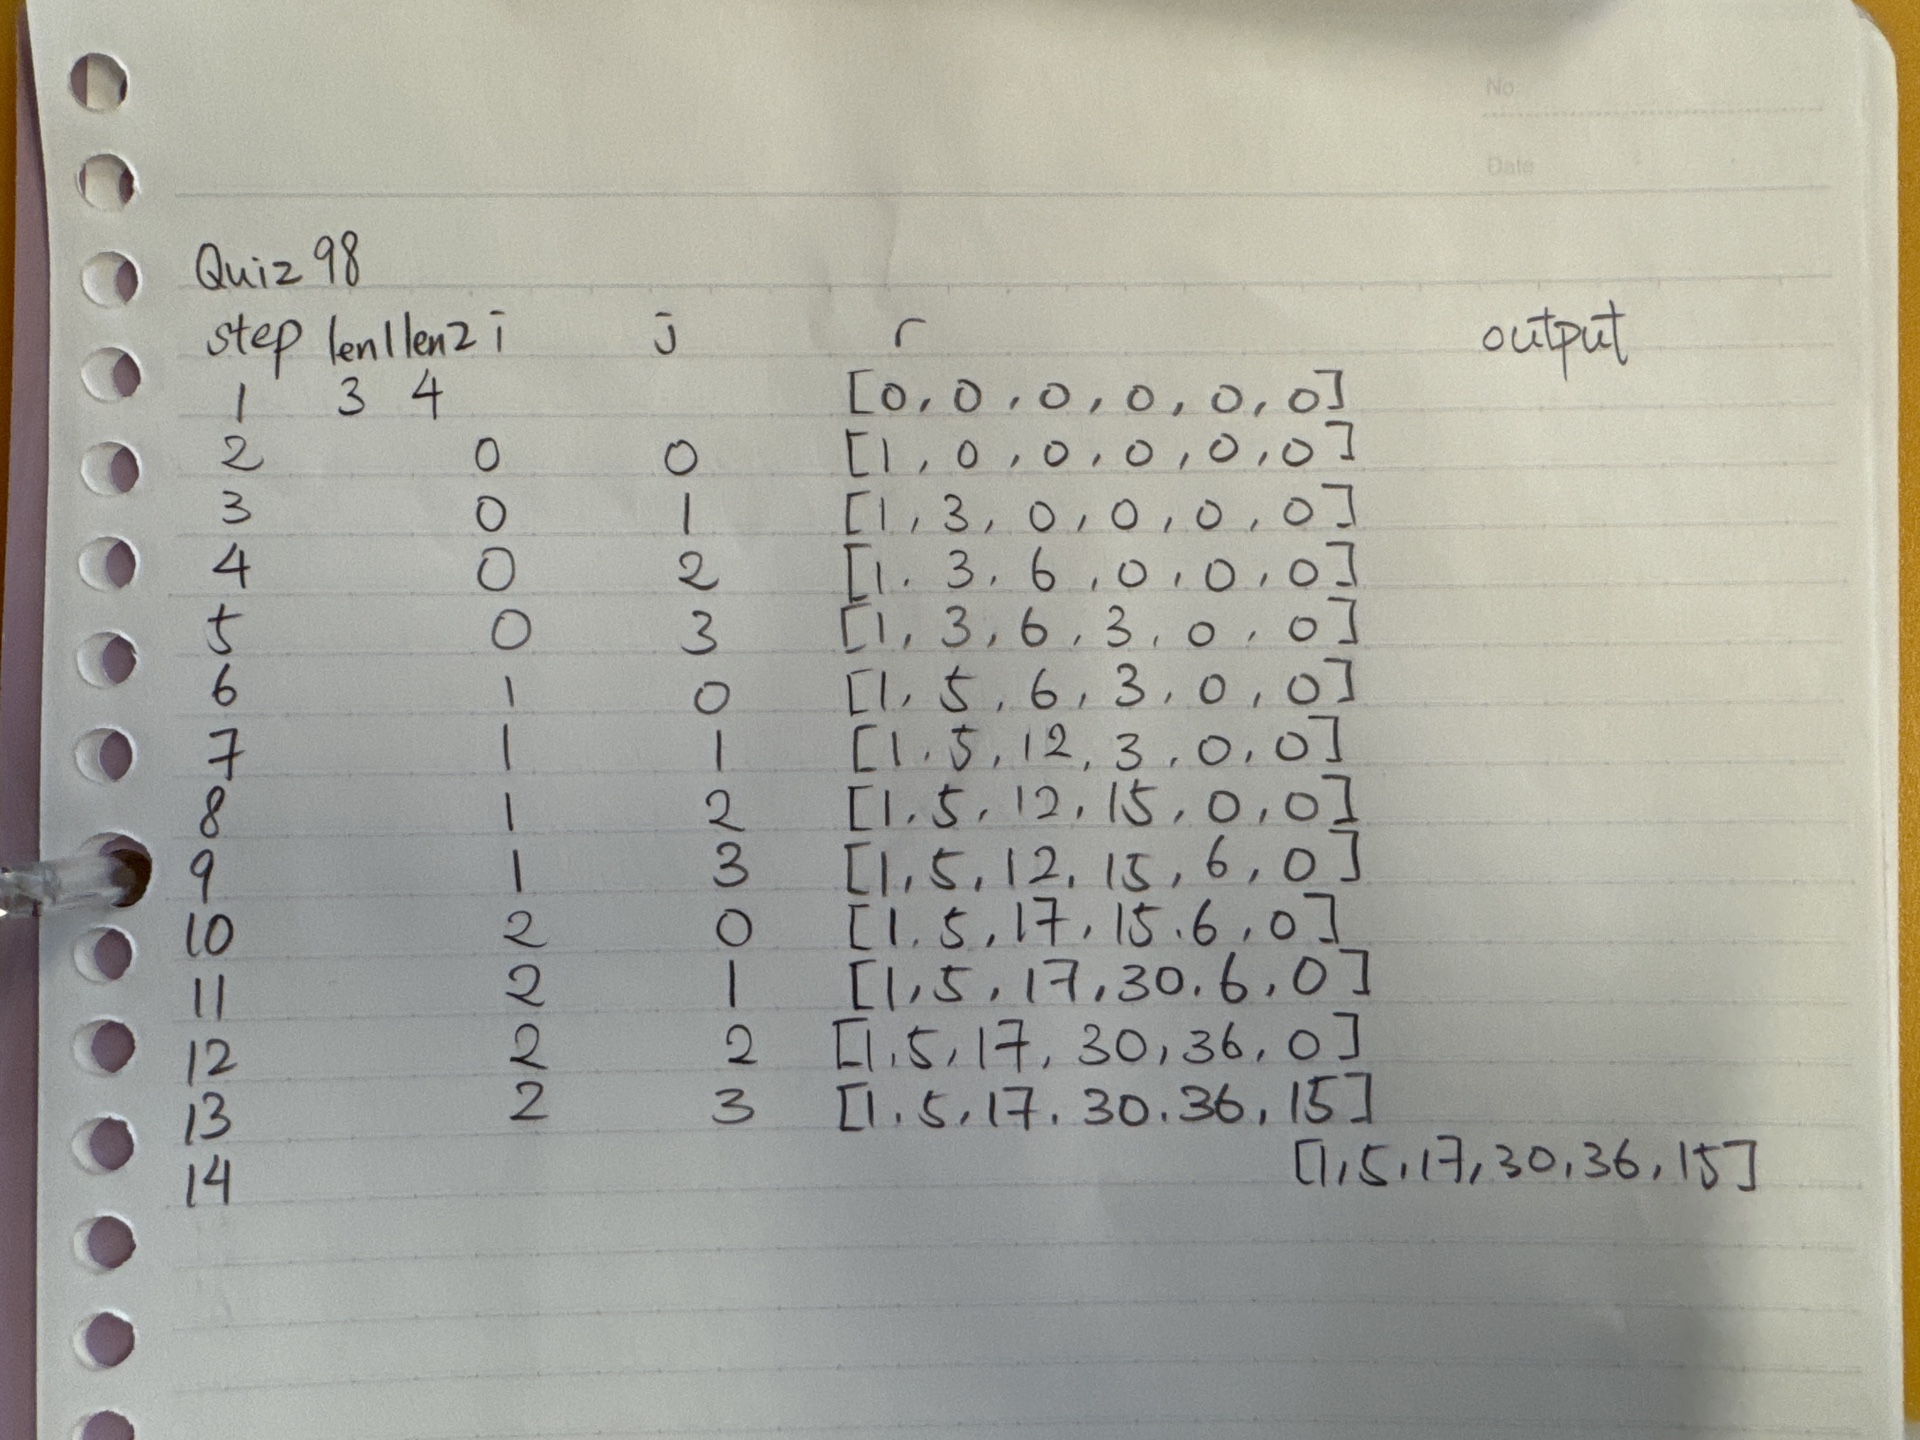 No
Date
Quiz 98
step len1 len2 i j r output
1 3 4 [0, 0, 0, 0, 0, 0]
2 0 0 [1, 0, 0, 0, 0, 0]
3 0 1 [1, 3, 0, 0, 0, 0]
4 0 2 [1, 3, 6, 0, 0, 0]
5 0 3 [1, 3, 6, 3, 0, 0]
6 1 0 [1, 5, 6, 3, 0, 0]
7 1 1 [1, 5, 12, 3, 0, 0]
8 1 2 [1, 5, 12, 15, 0, 0]
9 1 3 [1, 5, 12, 15, 6, 0]
10 2 0 [1, 5, 17, 15, 6, 0]
11 2 1 [1, 5, 17, 30, 6, 0]
12 2 2 [1, 5, 17, 30, 36, 0]
13 2 3 [1, 5, 17, 30, 36, 15]
14 [1, 5, 17, 30, 36, 15]